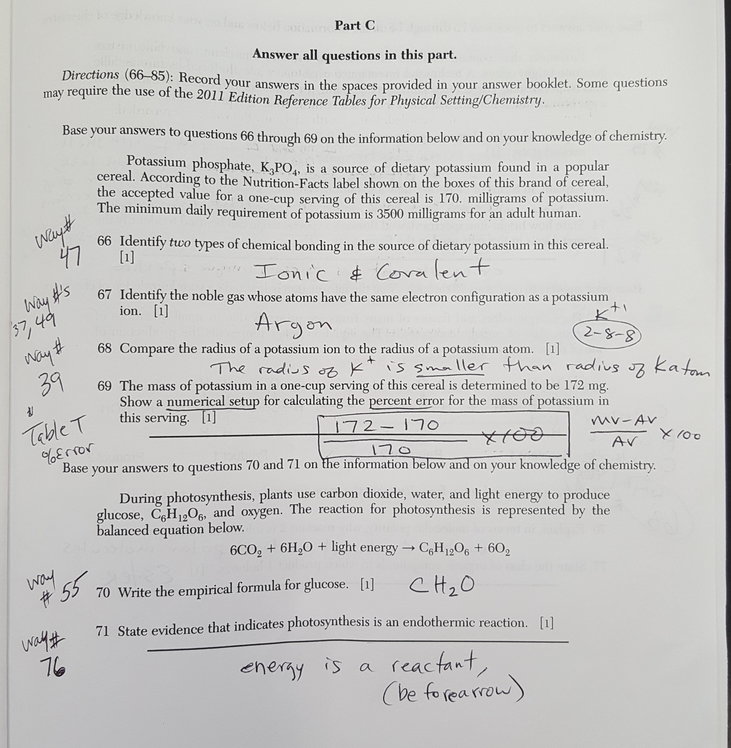 Part C
Answer all questions in this part.
Directions (66–85): Record your answers in the spaces provided in your answer booklet. Some questions
may require the use of the 2011 Edition Reference Tables for Physical Setting/Chemistry.
Base your answers to questions 66 through 69 on the information below and on your knowledge of chemistry.
Potassium phosphate, K₃PO₄, is a source of dietary potassium found in a popular
cereal. According to the Nutrition-Facts label shown on the boxes of this brand of cereal,
the accepted value for a one-cup serving of this cereal is 170. milligrams of potassium.
The minimum daily requirement of potassium is 3500 milligrams for an adult human.
way#
47
66 Identify two types of chemical bonding in the source of dietary potassium in this cereal.
[1]
Ionic & Covalent
way #'s
37, 49
67 Identify the noble gas whose atoms have the same electron configuration as a potassium
ion. [1]
Argon
K⁺¹
2-8-8
way#
39
68 Compare the radius of a potassium ion to the radius of a potassium atom. [1]
The radius of K⁺ is smaller than radius of K atom
69 The mass of potassium in a one-cup serving of this cereal is determined to be 172 mg.
Show a numerical setup for calculating the percent error for the mass of potassium in
this serving. [1]
Table T
% Error
172 – 170
170
x 100
MV – AV
AV
x 100
Base your answers to questions 70 and 71 on the information below and on your knowledge of chemistry.
During photosynthesis, plants use carbon dioxide, water, and light energy to produce
glucose, C₆H₁₂O₆, and oxygen. The reaction for photosynthesis is represented by the
balanced equation below.
6CO₂ + 6H₂O + light energy → C₆H₁₂O₆ + 6O₂
way
# 55
70 Write the empirical formula for glucose. [1]
CH₂O
way#
76
71 State evidence that indicates photosynthesis is an endothermic reaction. [1]
energy is a reactant,
(before arrow)